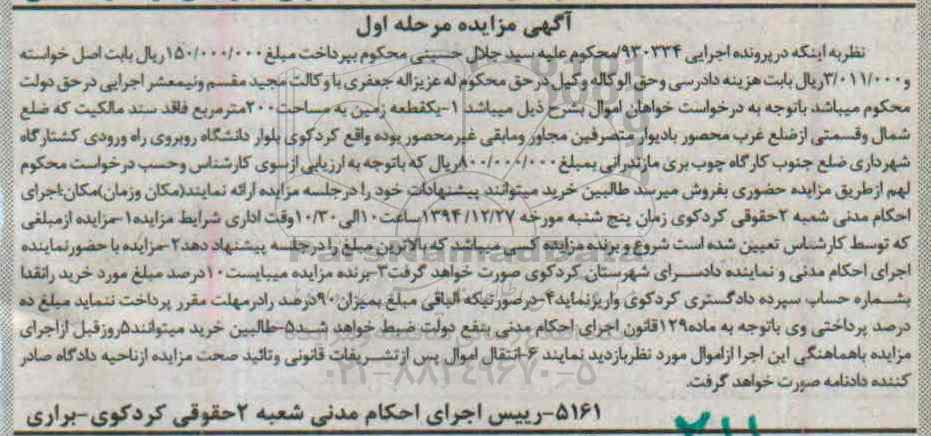 آگهی مزایده مرحله اول
نظربه اینکه درپرونده اجرایی ۹۳۰۳۳۴/محکوم علیه سید جلال حسینی محکوم بپرداخت مبلغ ۱۵۰/۰۰۰/۰۰۰ریال بابت اصل خواسته
و۳/۰۱۱/۰۰۰ریال بابت هزینه دادرسی وحق الوکاله وکیل درحق محکوم له عزیزاله جعفری باوکالت مجید مقسم ونیمعشر اجرایی درحق دولت
محکوم میباشد باتوجه به درخواست خواهان اموال بشرح ذیل میباشد ۱-یکقطعه زمین به مساحت۲۰۰مترمربع فاقد سند مالکیت که ضلع
شمال وقسمتی ازضلع غرب محصور بادیوار متصرفین مجاور ومابقی غیرمحصور بوده واقع کردکوی بلوار دانشگاه روبروی راه ورودی کشتارگاه
شهرداری ضلع جنوب کارگاه چوب بری مازندرانی بمبلغ ۸۰۰/۰۰۰/۰۰۰ریال که باتوجه به ارزیابی ازسوی کارشناس وحسب درخواست محکوم
لهم ازطریق مزایده حضوری بفروش میرسد طالبین خرید میتوانند پیشنهادات خود را درجلسه مزایده ارائه نمایند(مکان وزمان)مکان:اجرای
احکام مدنی شعبه ۲حقوقی کردکوی زمان پنج شنبه مورخه ۱۳۹۴/۱۲/۲۷ساعت۱۰الی۱۰/۳۰وقت اداری شرایط مزایده۱-مزایده ازمبلغی
که توسط کارشناس تعیین شده است شروع و برنده مزایده کسی میباشد که بالاترین مبلغ را درجلسه پیشنهاد دهد۲-مزایده با حضورنماینده
اجرای احکام مدنی و نماینده دادسرای شهرستان کردکوی صورت خواهد گرفت۳-برنده مزایده میبایست۱۰درصد مبلغ مورد خرید رانقدا
بشماره حساب سپرده دادگستری کردکوی واریزنماید۴-درصورتیکه الباقی مبلغ بمیزان۹۰درصد رادرمهلت مقرر پرداخت ننماید مبلغ ده
درصد پرداختی وی باتوجه به ماده۱۲۹قانون اجرای احکام مدنی بنفع دولت ضبط خواهد شد۵-طالبین خرید میتوانند۵روزقبل ازاجرای
مزایده باهماهنگی این اجرا ازاموال مورد نظربازدید نمایند ۶-انتقال اموال پس ازتشریفات قانونی وتائید صحت مزایده ازناحیه دادگاه صادر
کننده دادنامه صورت خواهد گرفت.
۵۱۶۱-رییس اجرای احکام مدنی شعبه ۲حقوقی کردکوی-براری
ParsNamadData
۰۲۱-۸۸۳۴۹۶۷۰-۵